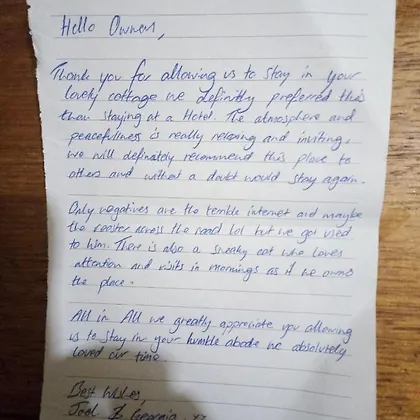 Hello Owners,
Thank you for allowing us to stay in your
lovely cottage we definitly preferred this
than staying at a Hotel. The atmosphere and
peacefullness is really relaxing and inviting,
we will definately recommend this place to
others and without a doubt would stay again.
Only negatives are the terrible internet and maybe
the rooster across the road lol but we got used
to him. There is also a sneaky cat who loves
attention and visits in mornings as if we owns
the place.
All in All we greatly appreciate you allowing
us to stay in your humble abode we absolutely
loved our time
Best Wishes,
Joel & Georgia xx